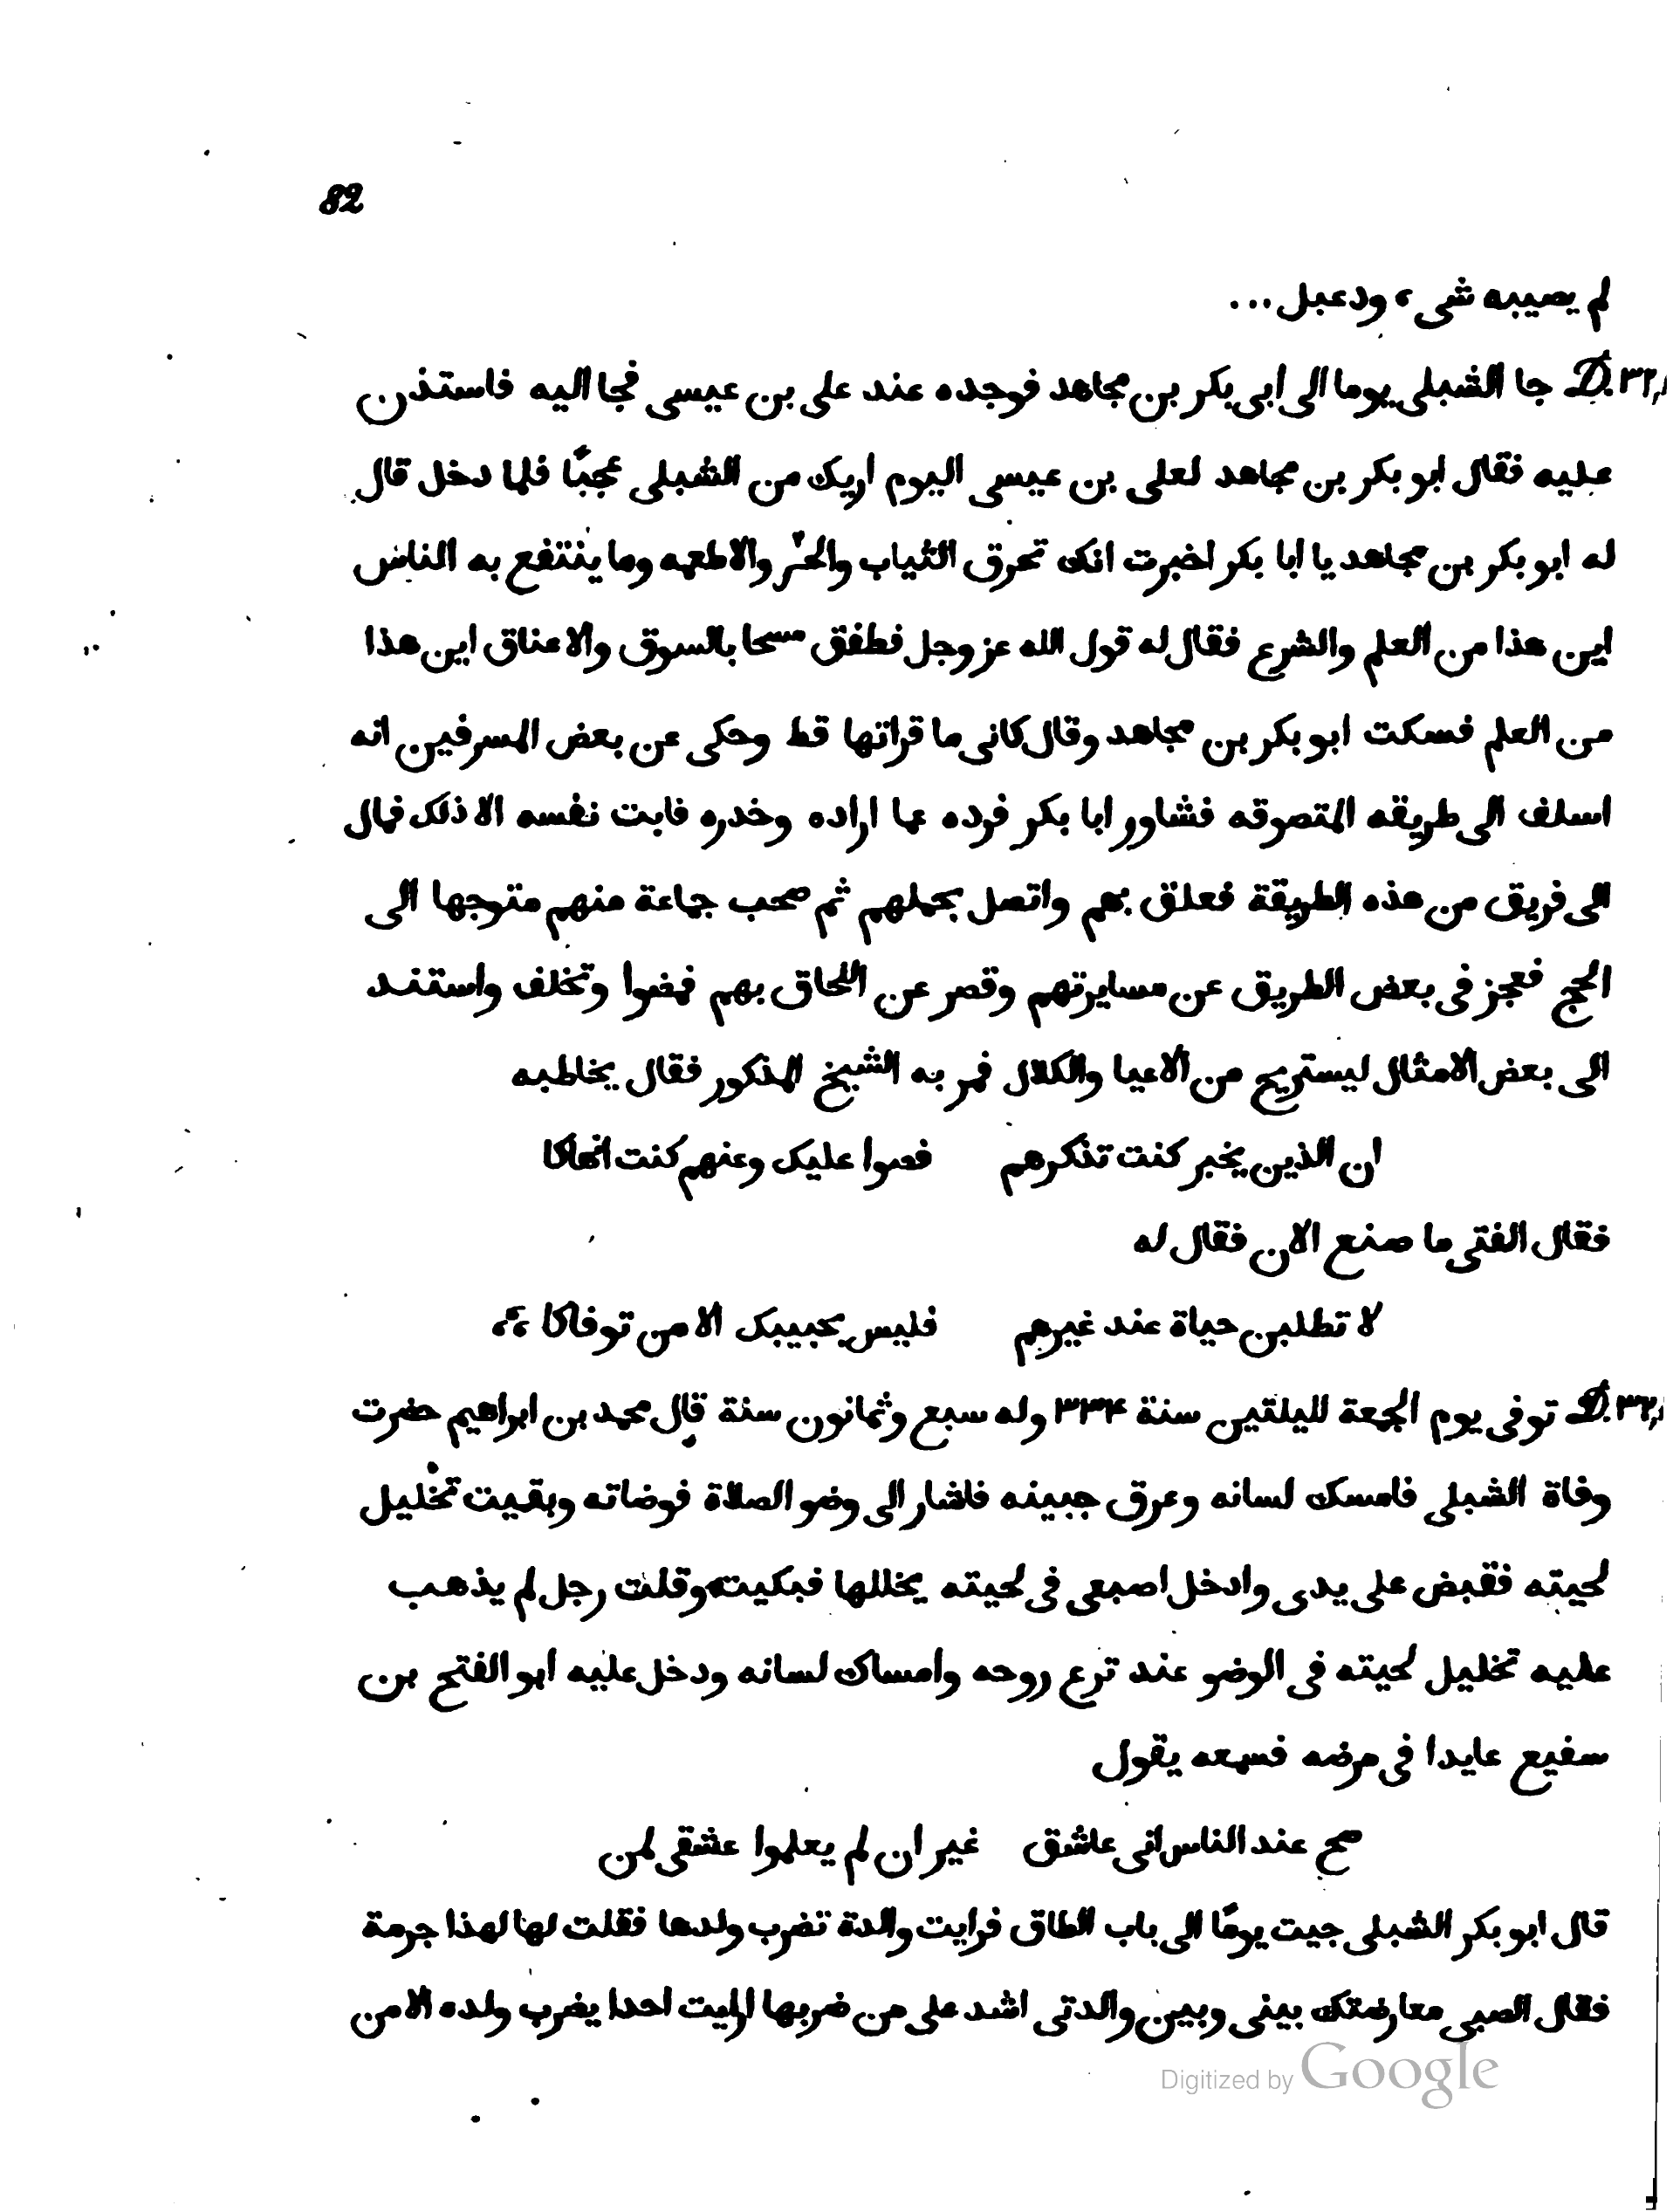 82
لم يصيبه شىء ودعبل...
D. ٣٢,١ جا الشبلى يوما الى ابى بكر بن مجاهد فوجده عند على بن عيسى فجا اليه فاستذن
عليه فقال ابو بكر بن مجاهد لعلى بن عيسى اليوم اريك من الشبلى عجبًا فلما دخل قال
له ابو بكر بن مجاهد يا ابا بكر اخبرت انك تحرق الثياب والخز والاطعمه وما ينتفع به الناس
اين هذا من العلم والشرع فقال له قول الله عز وجل فطفق مسحا بالسوق والاعناق اين هذا
من العلم فسكت ابو بكر بن مجاهد وقال كانى ما قراتها قط وحكى عن بعض المسرفين انه
اسلف الى طريقه المتصوقه فشاور ابا بكر فرده عما اراده وخدره فابت نفسه الا ذلك فمال
الى فريق من هذه الطريقة فعلق بهم واتصل بجملهم ثم صحب جماعة منهم متوجها الى
الحج فعجز فى بعض الطريق عن مسايرتهم وقصر عن اللحاق بهم فمضوا وتخلف واستند
الى بعض الامثال ليستريح من الاعيا والكلال فمر به الشيخ المذكور فقال يخاطبه
ان الذين يخبر كنت تذكرهم عليك وعنهم كنت انهاكا
فقال الفتى ما صنع الان فقال له
لا تطلبن حياة عند غيرهم فليس يحييك الا من توفاكا
D. ٣٢,١ توفى يوم الجمعة لليلتين سنة ٣٣٤ وله سبع وثمانون سنة قال محمد بن ابراهيم حضرت
وفاة الشبلى فامسك لسانه وعرق جبينه فاشار الى وضو الصلاة فوضاته وبقيت تخليل
لحيته فقبض على يدى وادخل اصبعى فى لحيته يخللها فبكيت وقلت رجل لم يذهب
عليه تخليل لحيته فى الوضو عند ترع روحه وامساك لسانه ودخل عليه ابو الفتح بن
سفيع عايدا فى مرضه فسمعه يقول
صح عند الناس انى عاشق غير ان لم يعلموا عشقى لمن
قال ابو بكر الشبلى جيت يومًا الى باب الطاق فرايت والدة تضرب ولدها فقلت لها لهذا جرمة
فقال الصبى معارضتك بينى وبين والدتى اشد على من ضربها ارايت احدا يضرب ولده الا من
Digitized by Google